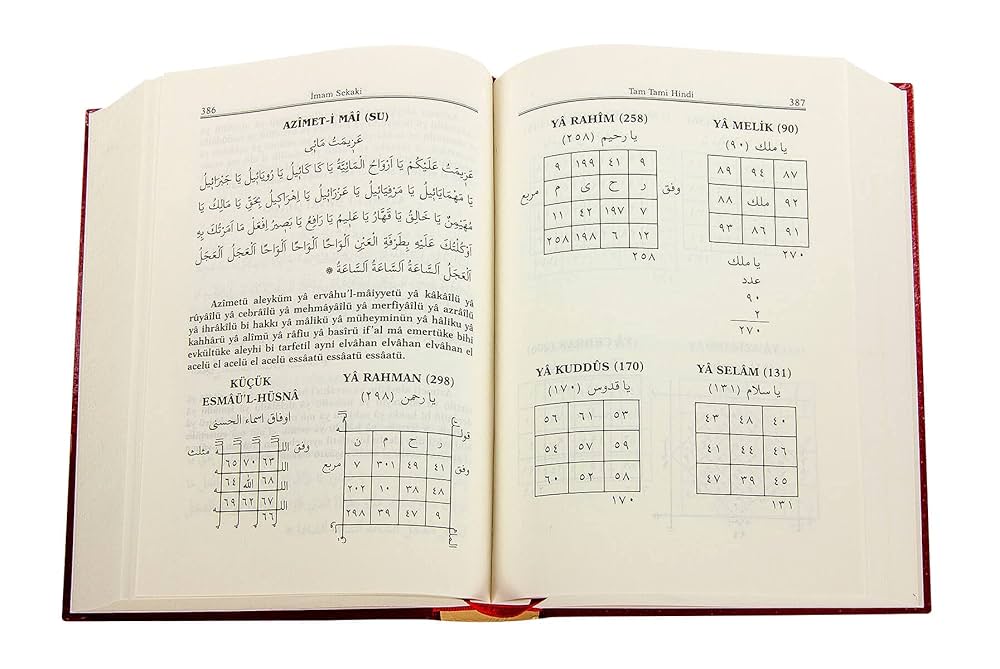 386
İmam Sekaki
AZÎMET-İ MÂİ (SU)
عَزِيمَتُ مَائِى
عَزِيمَتُ عَلَيْكُمْ يَا اَرْوَاحُ الْمَائِيَّةُ يَا كَا كَائِيلُ يَا رُويَائِيلُ يَا جَبْرَائِيلُ
يَا مَهْمَايَائِيلُ يَا مَرْفِيَائِيلُ يَا عَزْرَائِيلُ يَا اِهْرَاكِيلُ بِحَقِّ يَا مَالِكُ يَا
مُهَيْمِنُ يَا خَالِقُ يَا قَهَّارُ يَا عَلِيمُ يَا رَافِعُ يَا بَصِيرُ اِفْعَلْ مَا اَمَرْتُكَ بِهِ
اَوْكَلْتُكَ عَلَيْهِ بِطَرْفَةِ الْعَيْنِ اَلْوَاحًا اَلْوَاحًا اَلْوَاحًا اَلْعَجَلُ اَلْعَجَلُ
اَلْعَجَلُ اَلسَّاعَةُ اَلسَّاعَةُ اَلسَّاعَةُ
Azîmetü aleyküm yâ ervâhu'l-mâiyyetü yâ kâkâîlü yâ
rûyâîlü yâ cebrâîlü yâ mehmâyâîlü yâ merfiyâîlü yâ azrâîlü
yâ ihrâkîlü bi hakkı yâ mâlikü yâ müheyminün yâ hâliku yâ
kahhârü yâ alîmü yâ râfiu yâ basîrü if'al mâ emertüke bihi
evkültüke aleyhi bi tarfetil ayni elvâhan elvâhan elvâhan el
acelü el acelü el acelü essâatü essâatü essâatü.
KÜÇÜK
ESMÂÜ'L-HÜSNÂ
اوفاق اسماء الحسنى
وفق مثلث
٦٥ ٧٠ ٦٣
٦٤ الله ٦٨
٦٩ ٦٢ ٦٧
٦٦
YÂ RAHMAN (298)
يا رحمن (٢٩٨)
وفق مربع
ن م ح ر
٧ ٣٠١ ٤٩ ٤١
٢٠٢ ١٠ ٣٨ ٤٨
٢٩٨ ٣٩ ٤٧ ٩
Tam Tami Hindi
387
YÂ RAHÎM (258)
يا رحيم (٢٥٨)
وفق مربع
٩ ١٩٩ ٤١ ٩
م ى ح ر
١١ ٤٢ ١٩٧ ٧
٢٥٨ ١٩٨ ٦ ١٢
٢٥٨
YÂ MELİK (90)
يا ملك (٩٠)
٨٩ ٩٤ ٨٧
٨٨ ملك ٩٢
٩٣ ٨٦ ٩١
٢٧٠
يا ملك
عدد
٩٠
٢
٢٧٠
YÂ KUDDÛS (170)
يا قدوس (١٧٠)
٥٦ ٦١ ٥٣
٥٤ ٥٧ ٥٩
٦٠ ٥٢ ٥٨
١٧٠
YÂ SELÂM (131)
يا سلام (١٣١)
٤٣ ٤٨ ٤٠
٤١ ٤٤ ٤٦
٤٧ ٣٩ ٤٥
١٣١